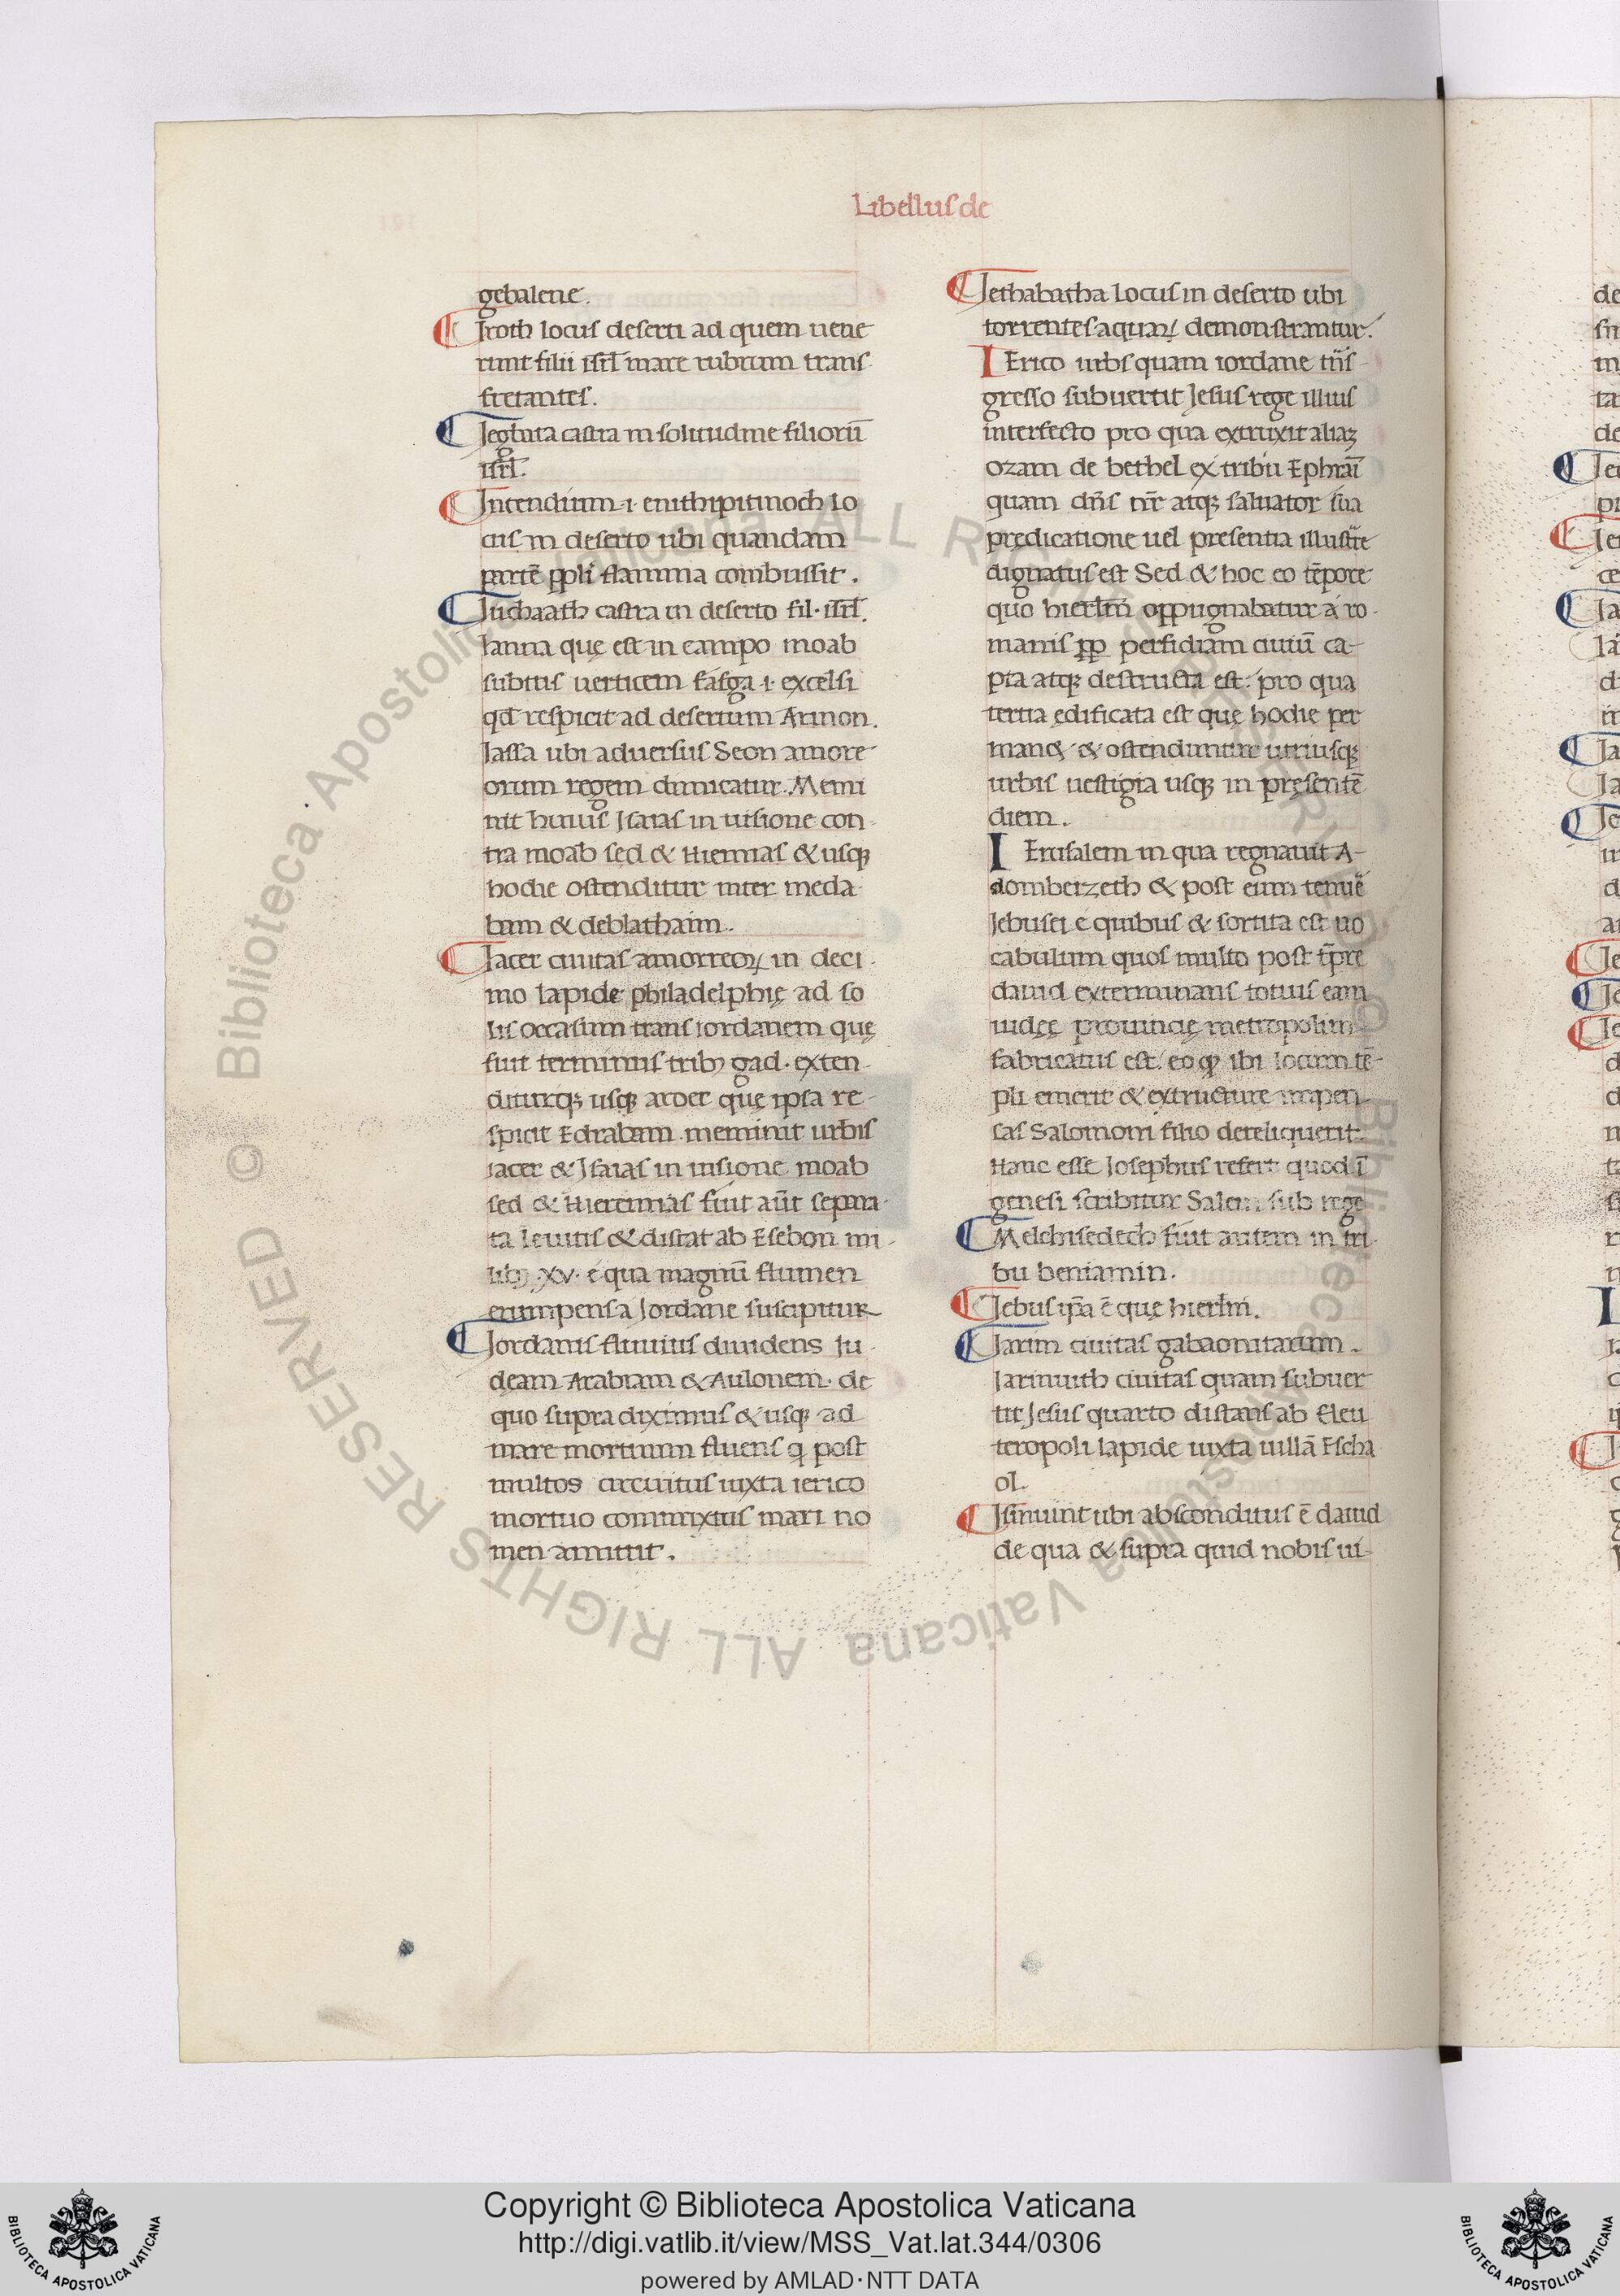 Libellus de
gebalene.
Iroth locus deserti ad quem uene
runt filii isrł mare rubrum trans
fretantes.
Iegbata castra in solitudine filiorū
isrł.
Incendium ·i· enithipitinoch lo
cus in deserto ubi quandam
partē ppłi flamma combussit.
Iuchaath castra in deserto fil· isrł.
Ianna quę est in campo moab
subtus uerticem fasga ·i· excelsi
qd̄ respicit ad desertum Arinon.
Iassa ubi aduersus Seon amore
orum regem dimicatur. Memi
nit huius Isaias in uisione con
tra moab sed & Hiermias & usq;
hodie ostenditur inter meda
bam & deblathaim.
Iacer ciuitas amorreoꝝ in deci
mo lapide philadelphię ad so
lis occasum trans iordanem quę
fuit terminus trib; gad· exten
diturq; usq; aroer quę ipsa re
spicit Edrabam meminit urbis
iacer & Isaias in uisione moab
sed & Hieremias fuit aūt separa
ta leuitis & distat ab Esebon mi
lib; ·xv· e qua magnū flumen
erumpens a Jordane suscipitur
Iordanis fluuius diuidens Iu
deam Arabiam & Aulonem· de
quo supra diximus & usq; ad
mare mortuum fluens q̨ post
multos circuitus iuxta ierico
mortuo commixtus mari no
men amittit.
Iethabatha locus in deserto ubi
torrentes aquaꝝ demonstrantur.
IErico urbs quam iordane tn̄s
gresso subuertit Jesus rege illius
interfecto pro qua extruxit aliaʒ
ozam de bethel ex tribu Ephraī
quam dn̄s nr̄ atq; saluator sua
predicatione uel presentia illustre
dignatus est Sed & hoc eo tēpore
quo hierłm oppugnabatur a ro
manis pp perfidiam ciuiū ca
pta atq; destructa est: pro qua
tertia edificata est quę hodie per
man& & ostenduntur utriusq;
urbis uestigia usq; in pręsentē
diem.
IErusalem in qua regnauit A
dombezeth & post eum tenuē
Iebusei e quibus & sortita est uo
cabulum quos multo post tp̄re
dauid exterminans totius eam
iudęę prouincię metropolim
fabricatus est. eo q; ibi locum tē
pli emerit & extructure impen
sas Salomoni filio dereliquerit:
Hanc esse Josephus refert quod ī
genesi scribitur Salem sub rege
Melchisedech fuit autem in tri
bu beniamin.
Iebus ip̄a ē quę hierłm.
Iarim ciuitas gabaonitarum.
Iarimuth ciuitas quam subuer
tit Jesus quarto distans ab Eleu
teropoli lapide iuxta uillā Escha
ol.
Isimuint ubi absconditus ē dauid
de qua & supra quid nobis ui
Copyright © Biblioteca Apostolica Vaticana
http://digi.vatlib.it/view/MSS_Vat.lat.344/0306
powered by AMLAD·NTT DATA
BIBLIOTECA APOSTOLICA VATICANA
BIBLIOTECA APOSTOLICA VATICANA
© Biblioteca Apostolica Vaticana ALL RIGHTS RESERVED © Biblioteca Apostolica Vaticana ALL RIGHTS RESERVED